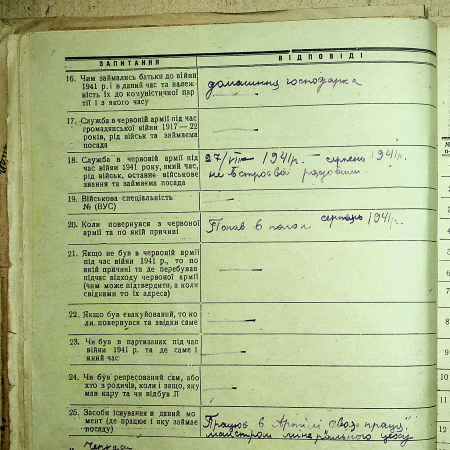 ЗАПИТАННЯ
ВІДПОВІДІ
16. Чим займались батьки до війни
1941 р. і в даний час та належ
ність їх до комуністичної пар
тії і з якого часу
домашница господарка
17. Служба в червоній армії під час
громадянської війни 1917—22
років, рід військ та займаєма
посада
18. Служба в червоній армії під
час війни 1941 року, який час,
рід військ, останнє військове
звання та займаєма посада
27/VII — 1941р. — серпень 1941р.
не встроєвій рядовим.
19. Військова спеціяльність
№ (ВУС)
20. Коли повернувся з червоної
армії та по якій причині
Попав в полон серпень 1941р.
21. Якщо не був в червоній армії
під час війни 1941 р., то по
якій причині та де перебував
підчас відходу червоної армії
(чим може підтвердити, а коли
свідками то їх адреса)
22. Якщо був евакуйований, то ко
ли повернувся та звідки саме
23. Чи був в партизанах під час
війни 1941 р. та де саме і
який час
24. Чи був репресований сам, або
хто з родичів, коли і защо, яку
мав кару та чи відбув її
25. Засоби існування в даний мо
мент (де працює і яку займає
посаду)
Працює в Артілі
майстром цеху
Черкаси
8
10
12